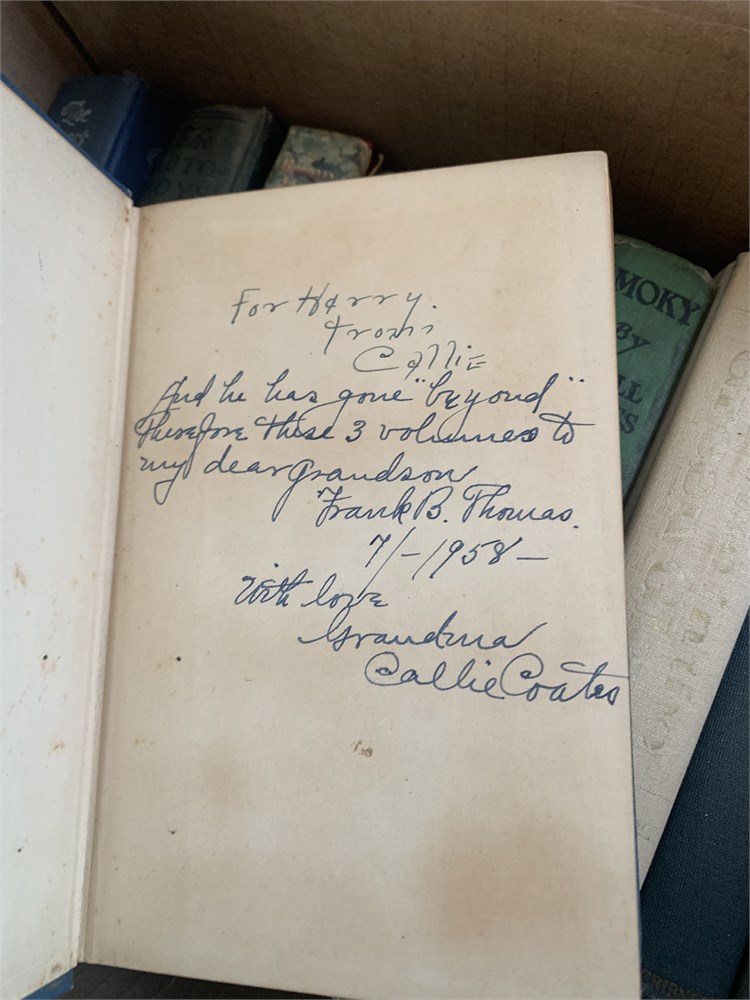 The
The
AUTO
BOYS
For Harry.
From
Callie
And he has gone "beyond"
Therefore these 3 volumes to
my dear grandson
Frank B. Thomas.
7/-1958-
With love
Grandma
Callie Coates
MOKY
By
LL
ES